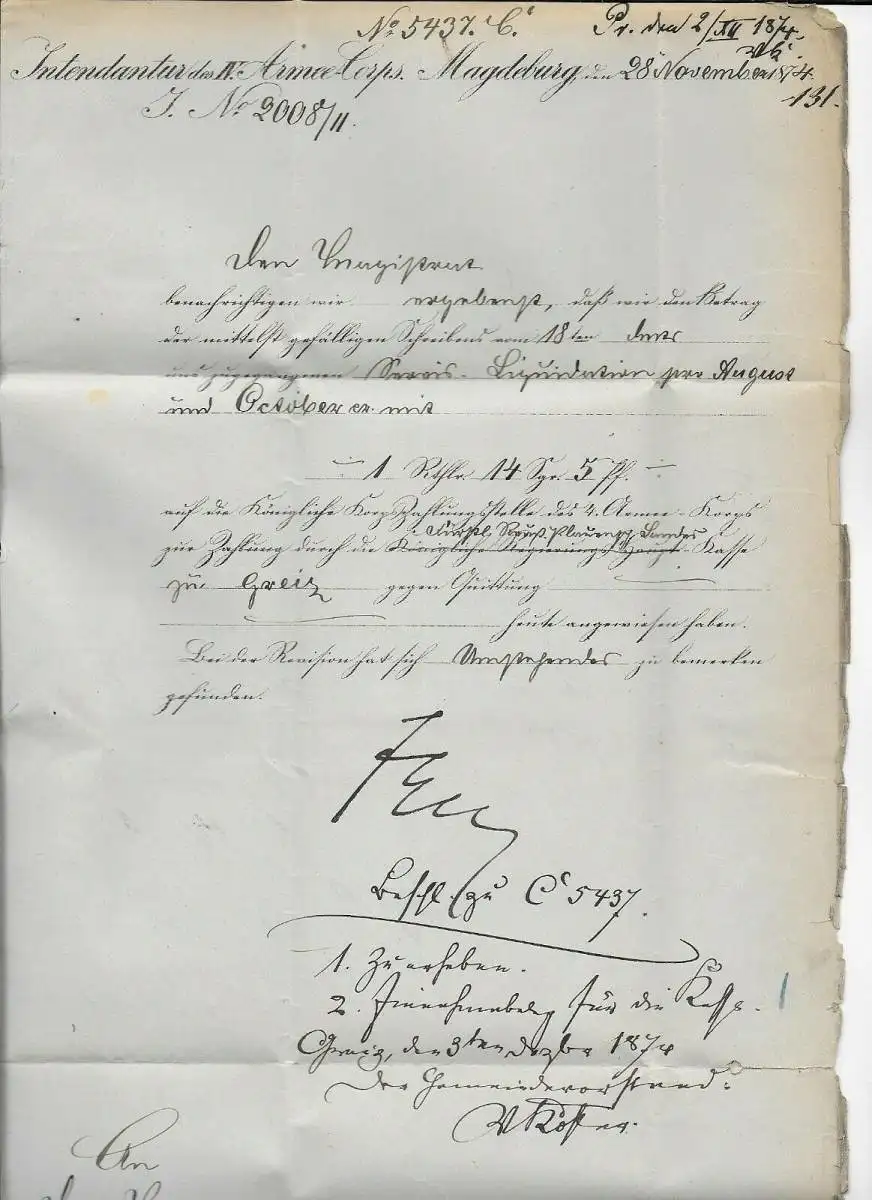 No 5437. C. Pr. den 2/XII 1874.
Intendantur des IV. Armee-Corps. Magdeburg, den 28 November 1874.
J. No 2008/11. 131.
Den Magistrat
benachrichtigen wir ergebenst, daß wir den Betrag
der mittelst gefälligen Schreibens vom 18ten
uns zugegangenen Servis-Liquidation per August
und October cr. mit
1 Rthlr. 14 Sgr. 5 Pf.
auf die Königliche Korps-Zahlungsstelle des 4. Armee-Korps
Fürstl. Reuß. Plauensch. Landes
zur Zahlung durch die Königliche Regierungs-Haupt-Kasse
zu Greiz gegen Quittung
heute angewiesen haben.
Bei der Revision hat sich Umstehendes zu bemerken
gefunden.
Beschl. zu C 5437.
1. Zu erheben.
2. Einnahmebeleg für die Kasse.
Greiz, den 3ten Dezbr 1874
Der Gemeindevorstand.
An